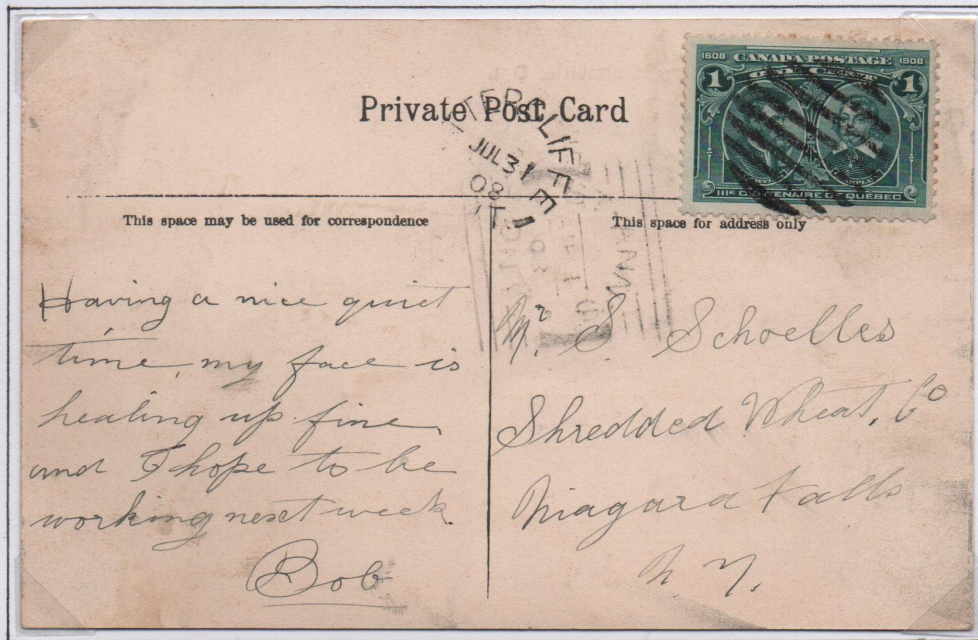 1608 CANADA POSTAGE 1908
1 1
IIIe CENTENAIRE DE QUÉBEC
Private Post Card
JUL 31
08
This space may be used for correspondence
This space for address only
Having a nice quiet
time, my face is
healing up fine,
and I hope to be
working next week.
Bob
Mr. S. Schoelles
Shredded Wheat, Co
Niagara Falls
N Y.